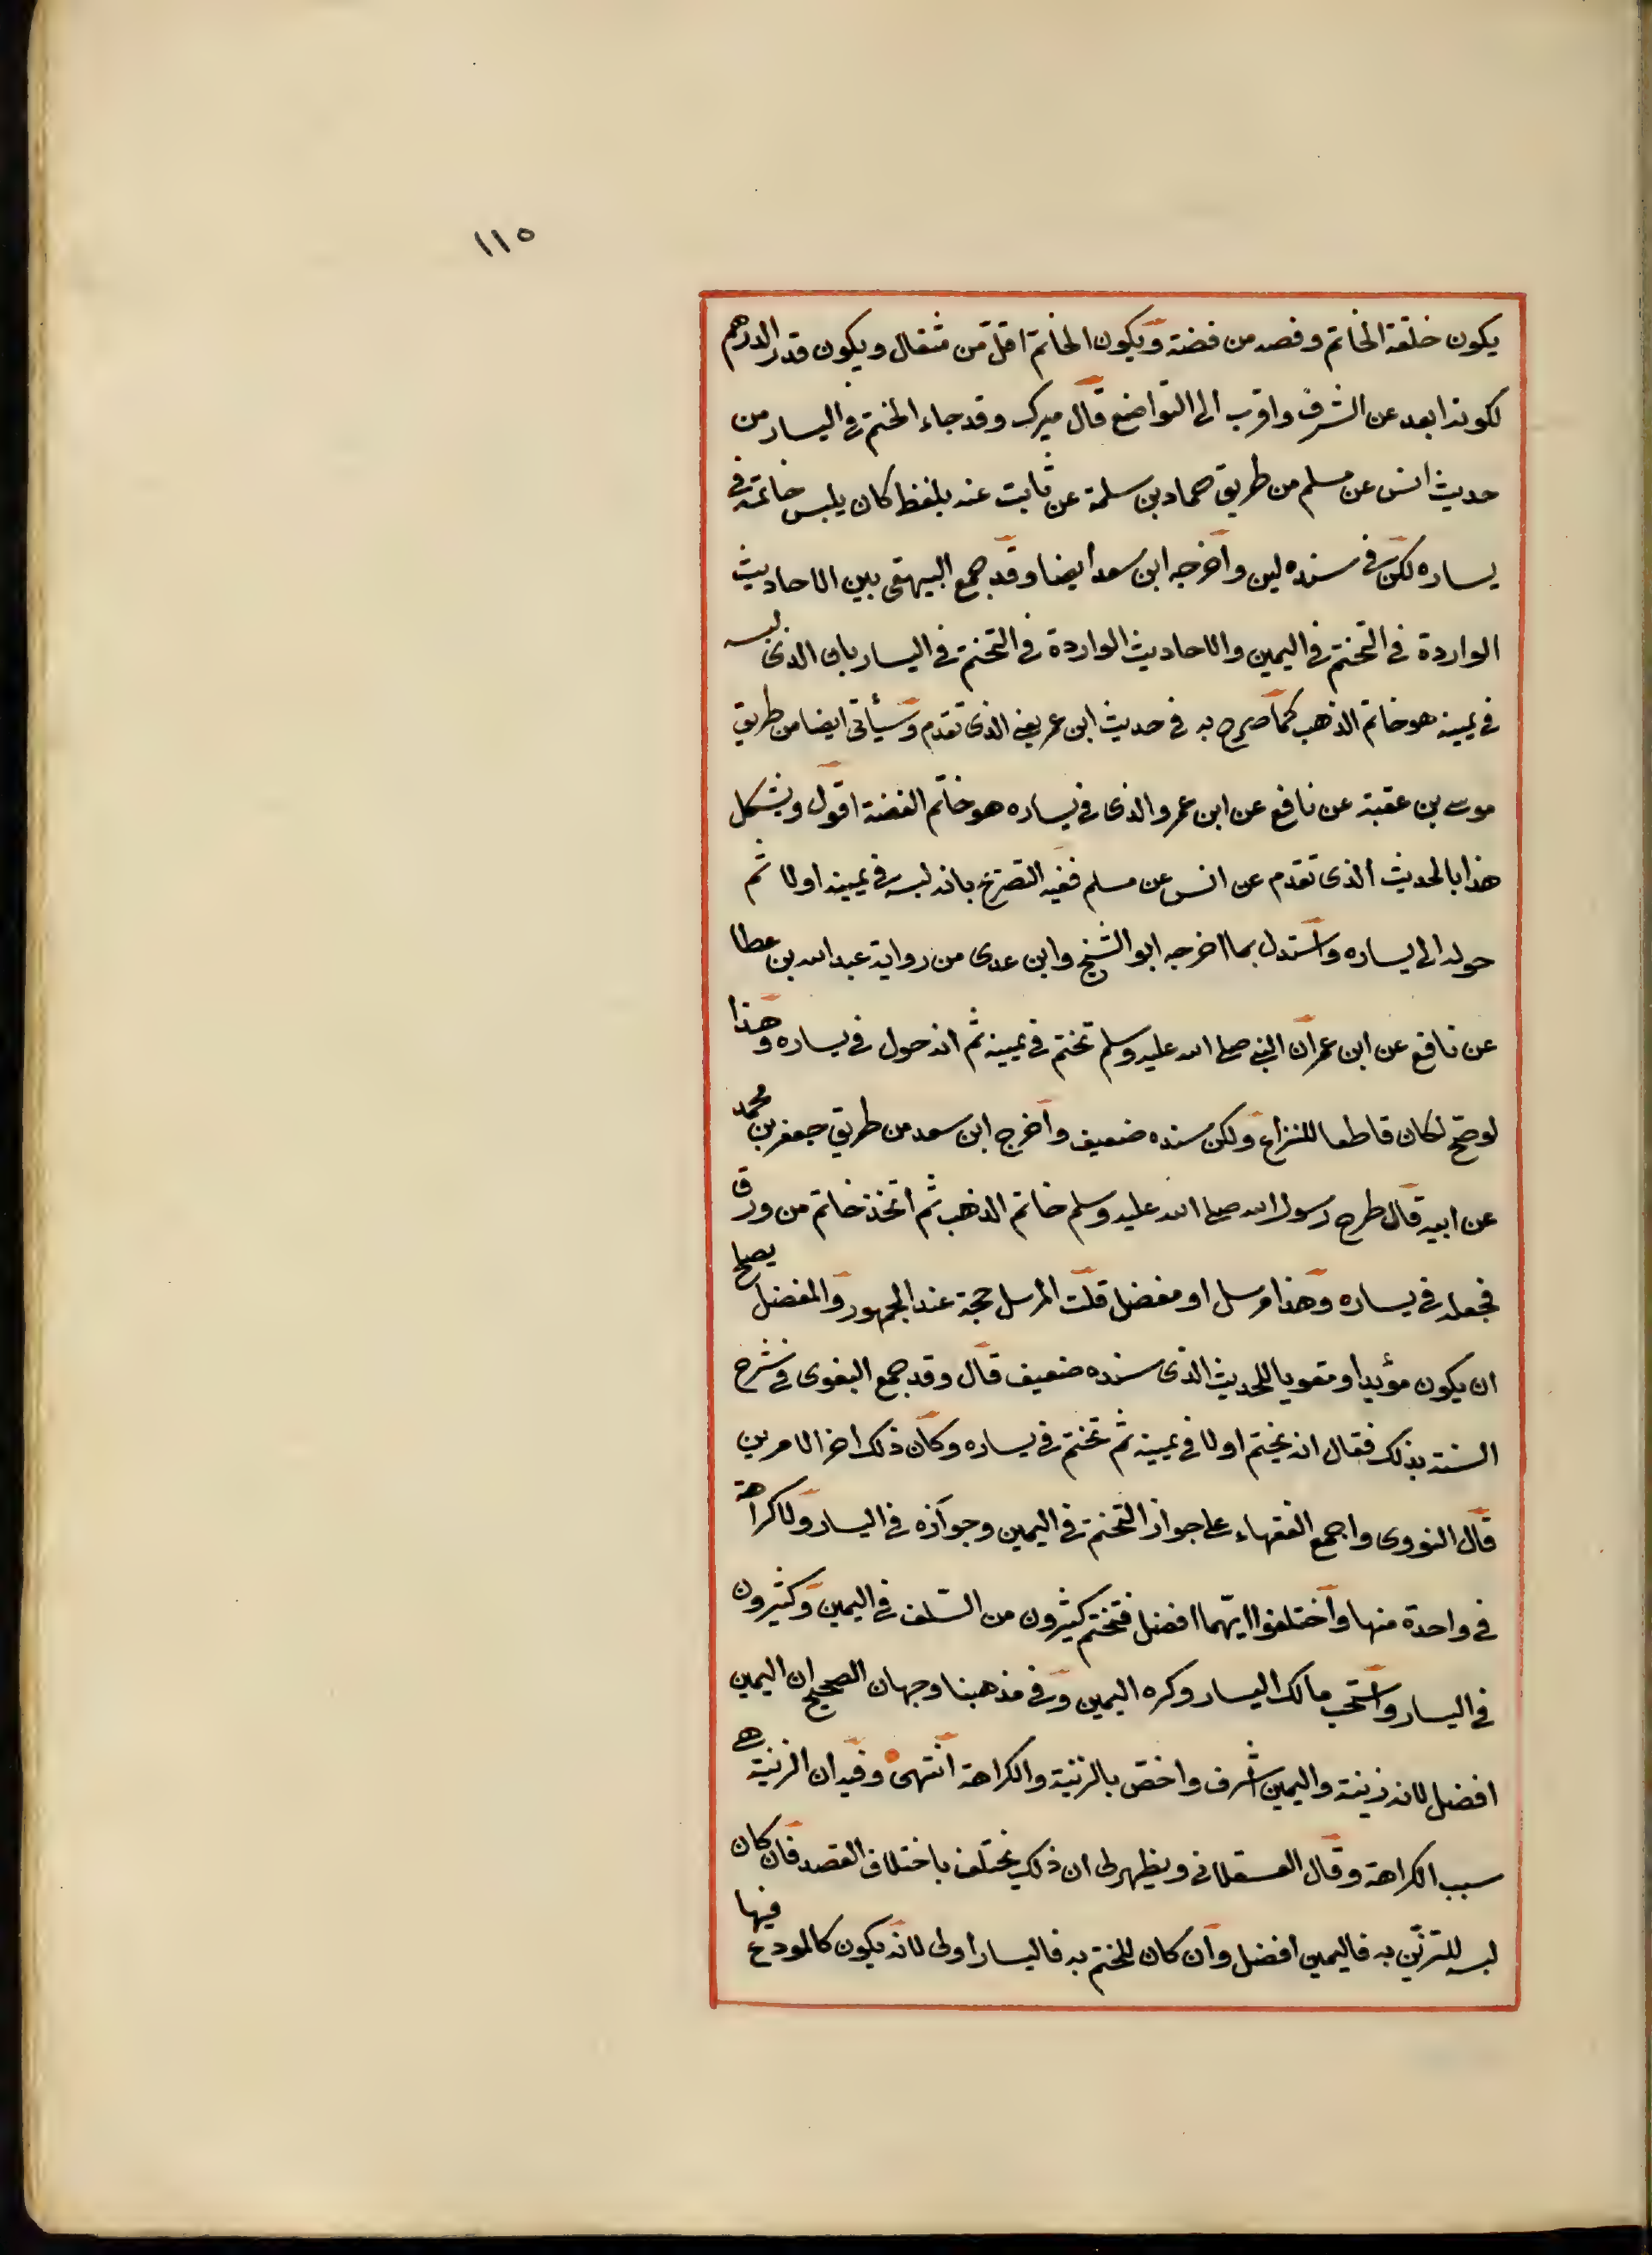 ١١٥
يكون خلقة الخاتم وفصه من فضة ويكون الخاتم اقل من مثقال ويكون قدر الدرهم
لكونه ابعد عن الشرف واقرب الى التواضع قال ميرك وقد جاء الختم في اليسار من
حديث انس عن مسلم من طريق حماد بن سلمة عن ثابت عنه بلفظ كان يلبس خاتمه في
يساره لكن في سنده لين واخرجه ابن سعد ايضا وقد جمع البيهقى بين الاحاديث
الواردة في التختم في اليمين والاحاديث الواردة في التختم في اليسار بان الذى لبسه
في يمينه هو خاتم الذهب كما صرح به في حديث ابن عمر يعني الذى تقدم وسيأتى ايضا من طريق
موسى بن عقبة عن نافع عن ابن عمر والذى في يساره هو خاتم الفضة اقول ويشكل
هذا بالحديث الذى تقدم عن انس عن مسلم ففيه التصريح بانه لبسه في يمينه اولا ثم
حوله الى يساره واستدل بما اخرجه ابو الشيخ وابن عدى من رواية عبد الله بن عطا
عن نافع عن ابن عمر ان النبي صلى الله عليه وسلم تختم في يمينه ثم انه حول في يساره وهذا
لو صح لكان قاطعا للنزاع ولكن سنده ضعيف واخرج ابن سعد من طريق جعفر بن محمد
عن ابيه قال طرح رسول الله صلى الله عليه وسلم خاتم الذهب ثم اتخذ خاتم من ورق
فجعله في يساره وهذا مرسل او مفضل قلت المرسل حجة عند الجمهور والمفضل يصلح
ان يكون مؤيدا ومقويا للحديث الذى سنده ضعيف قال وقد جمع البغوى في شرح
السنة بذلك فقال انه يختم اولا في يمينه ثم تختم في يساره وكان ذلك اخر الامرين
قال النووى واجمع الفقهاء على جواز التختم في اليمين وجوازه في اليسار ولا كراهة
في واحدة منها واختلفوا ايهما افضل فتختم كثيرون من السلف في اليمين وكثيرون
في اليسار واستحب مالك اليسار وكره اليمين وفي مذهبنا وجهان الصحيح ان اليمين
افضل لانه زينة واليمين اشرف واخص بالزينة والكراهة انتهى وفيه ان الزينة هى
سبب الكراهة وقال العسقلانى ويظهر لى ان ذلك يختلف باختلاف القصد فان كان
لبسه للتزين به فاليمين افضل وان كان للختم به فاليسار اولى لانه يكون كالمودع فيها